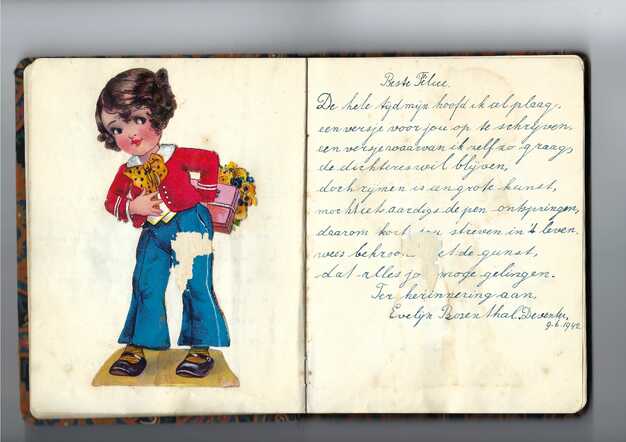 Beste Felice.
De hele tijd mijn hoofd ik al plaag,
een versje voor jou op te schrijven,
een versje waarvan ik zelf zo graag,
de dichteres wil blijven,
doch rijmen is een grote kunst,
mocht iets aardigs de pen ontspringen,
daarom kort streven in 't leven.
wees bekroon et de gunst,
dat alles jo moge gelingen.
Ter herinnering aan,
Evelyn Rosenthal. Deventer,
9-6-1942